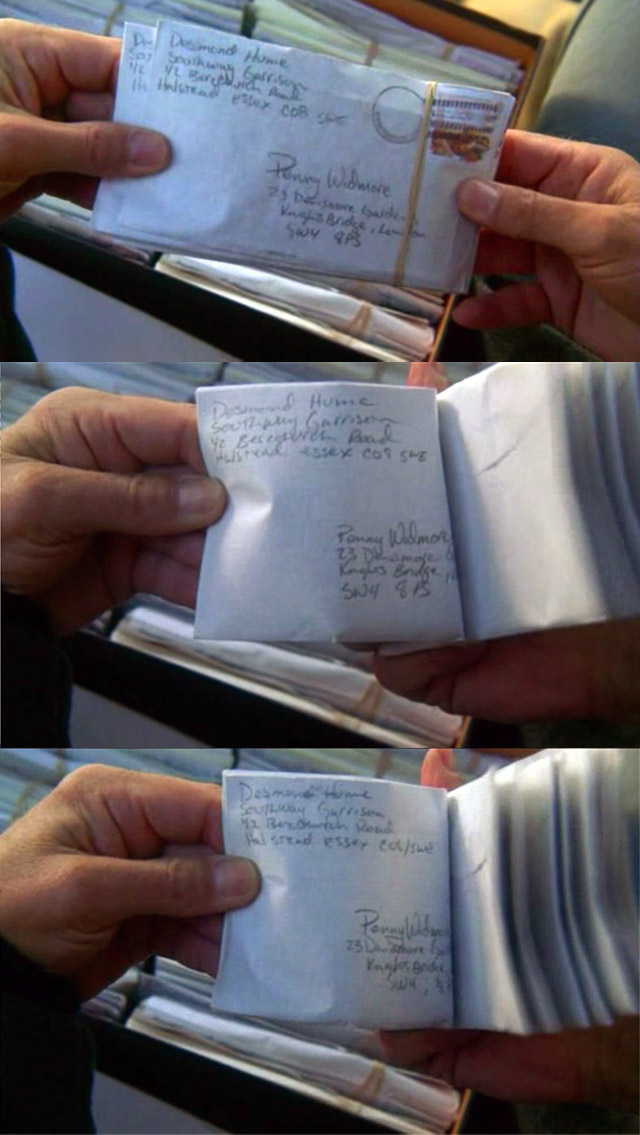 Desmond Hume
Southway Garrison
42 Berechurch Road
Halstead Essex CO8 5WE
Penny Widmore
23 Dansmore Garden
Knights Bridge, London
SW4 8PS
Desmond Hume
Southway Garrison
42 Berechurch Road
Halstead essex CO8 5WE
Penny Widmore
23 Dansmore
Knights Bridge
SW4 8PS
Desmond Hume
Southway Garrison
42 Berechurch Road
Halstead essex 5WE
Penny Widmo
23 Dansmore
Knights Bridge
SW4